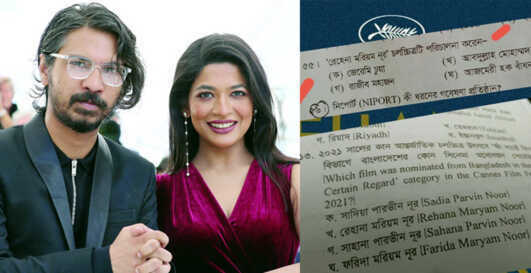 ৫৫। 'রেহেনা মরিয়ম নূর' চলচ্চিত্রটি পরিচালনা করেন–
(ক) জেরেমি চুয়া
(খ) আবদুল্লাহ মোহাম্মদ
(গ) রাজীব মহাজন
(ঘ) আজমেরী হক বাঁধন
নিপোর্ট (NIPORT) কী ধরনের গবেষণা প্রতিষ্ঠান?
গ. রিয়াদ (Riyadh)
২০২১ সালের কান আন্তর্জাতিক চলচ্চিত্র উৎসবে
বিভাগে বাংলাদেশের কোন সিনেমা
[Which film was nominated from Bangladesh
Certain Regard' category in the Cannes Film
2021?]
ক. সাদিয়া পারভীন নূর [Sadia Parvin Noor]
খ. রেহানা মরিয়ম নূর [Rehana Maryam Noor]
গ. সাহানা পারভীন নূর [Sahana Parvin Noor]
ঘ. ফরিদা মরিয়ম নূর [Farida Maryam Noor]